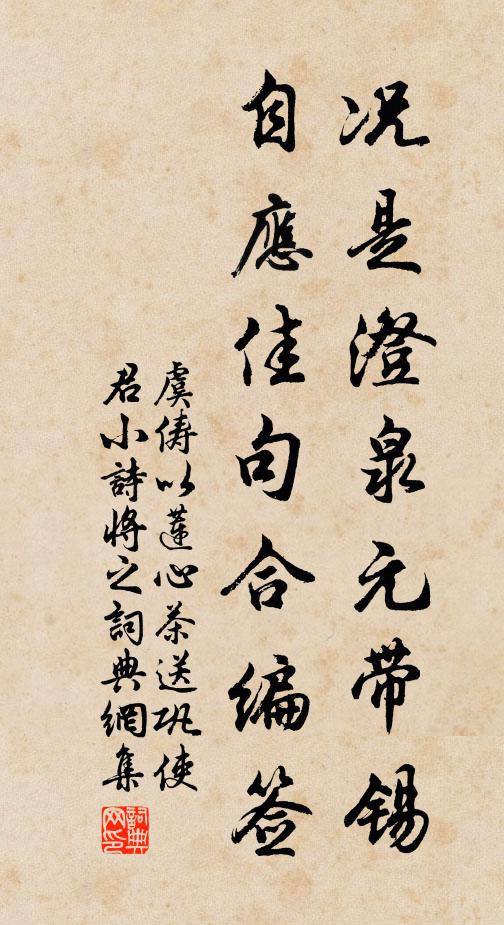 况是澄泉元带锡
自應佳句合编签
虞儔以蓮心茶送巩使
君小詩將之詞典網集
詞典
网印